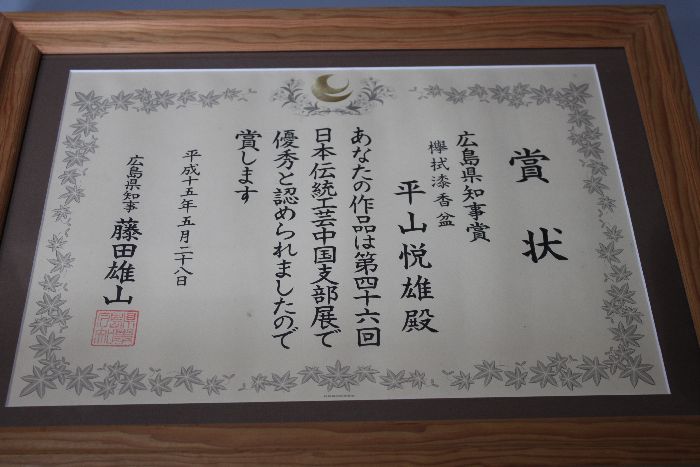 賞状
広島県知事賞
欅拭漆香盆
平山悦雄殿
あなたの作品は第四十六回
日本伝統工芸中国支部展で
優秀と認められましたので
賞します
平成十五年五月二十八日
広島県知事 藤田雄山